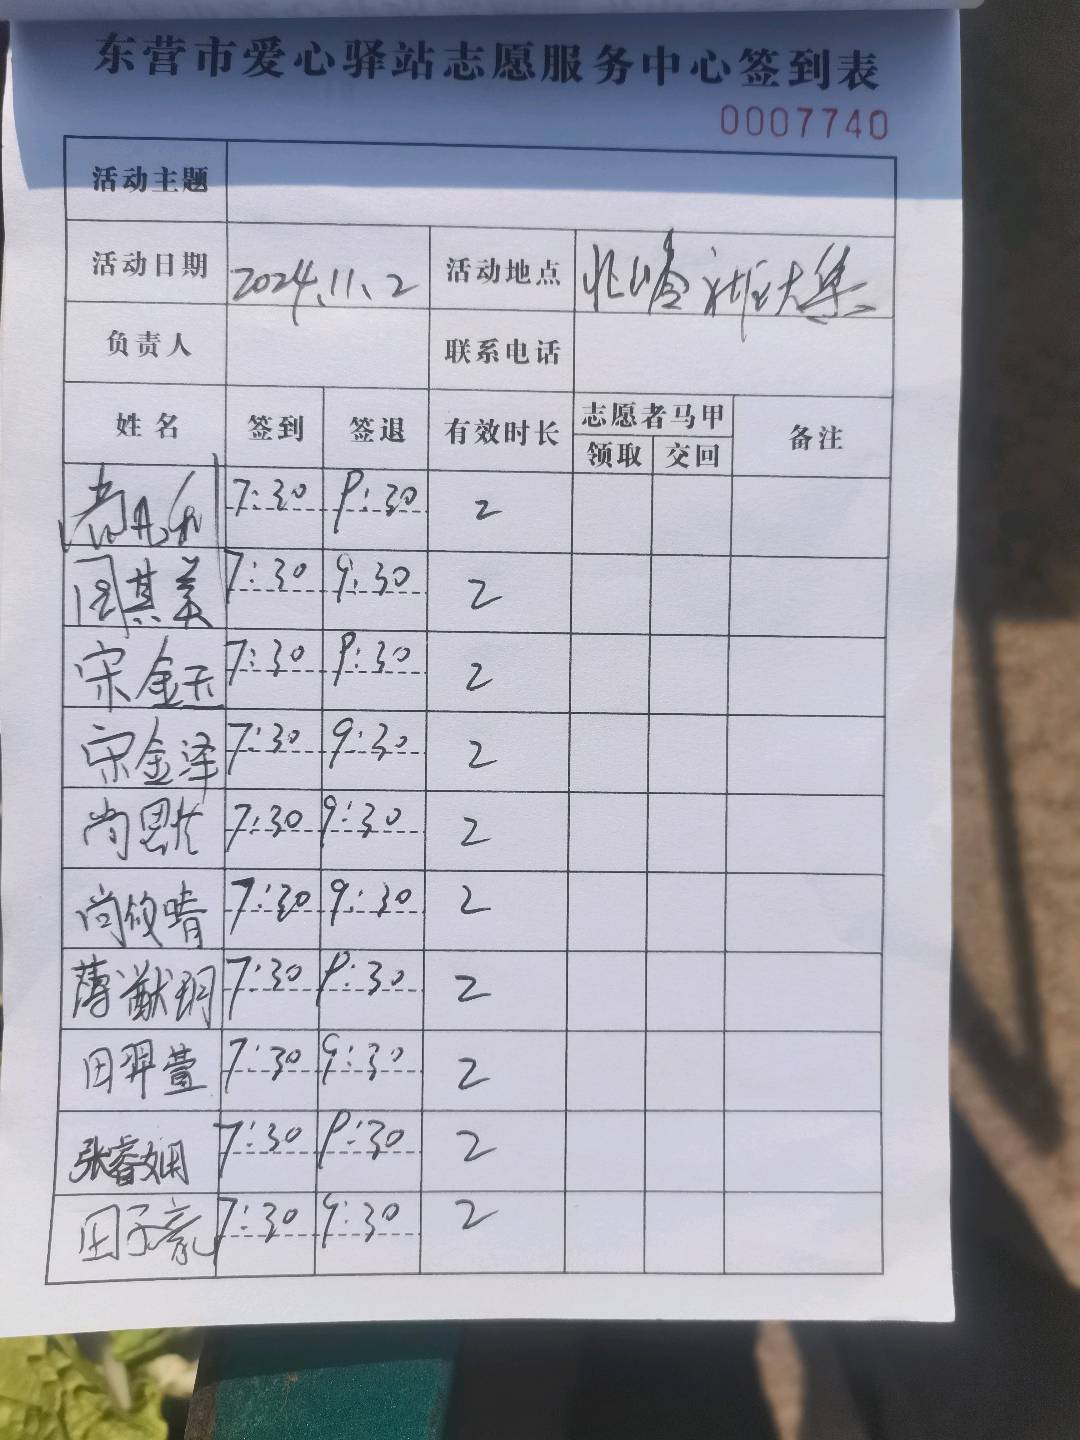 东营市爱心驿站志愿服务中心签到表
0007740
活动主题
活动日期 2024.11.2 活动地点 北岭社区大集
负责人 联系电话
姓名 签到 签退 有效时长 志愿者马甲 备注
领取 交回
7:30 9:30 2
周其美 7:30 9:30 2
宋金玉 7:30 9:30 2
宋金泽 7:30 9:30 2
尚思 7:30 9:30 2
尚筱晴 7:30 9:30 2
薄猷玥 7:30 9:30 2
田羿萱 7:30 9:30 2
张睿娴 7:30 9:30 2
田子豪 7:30 9:30 2